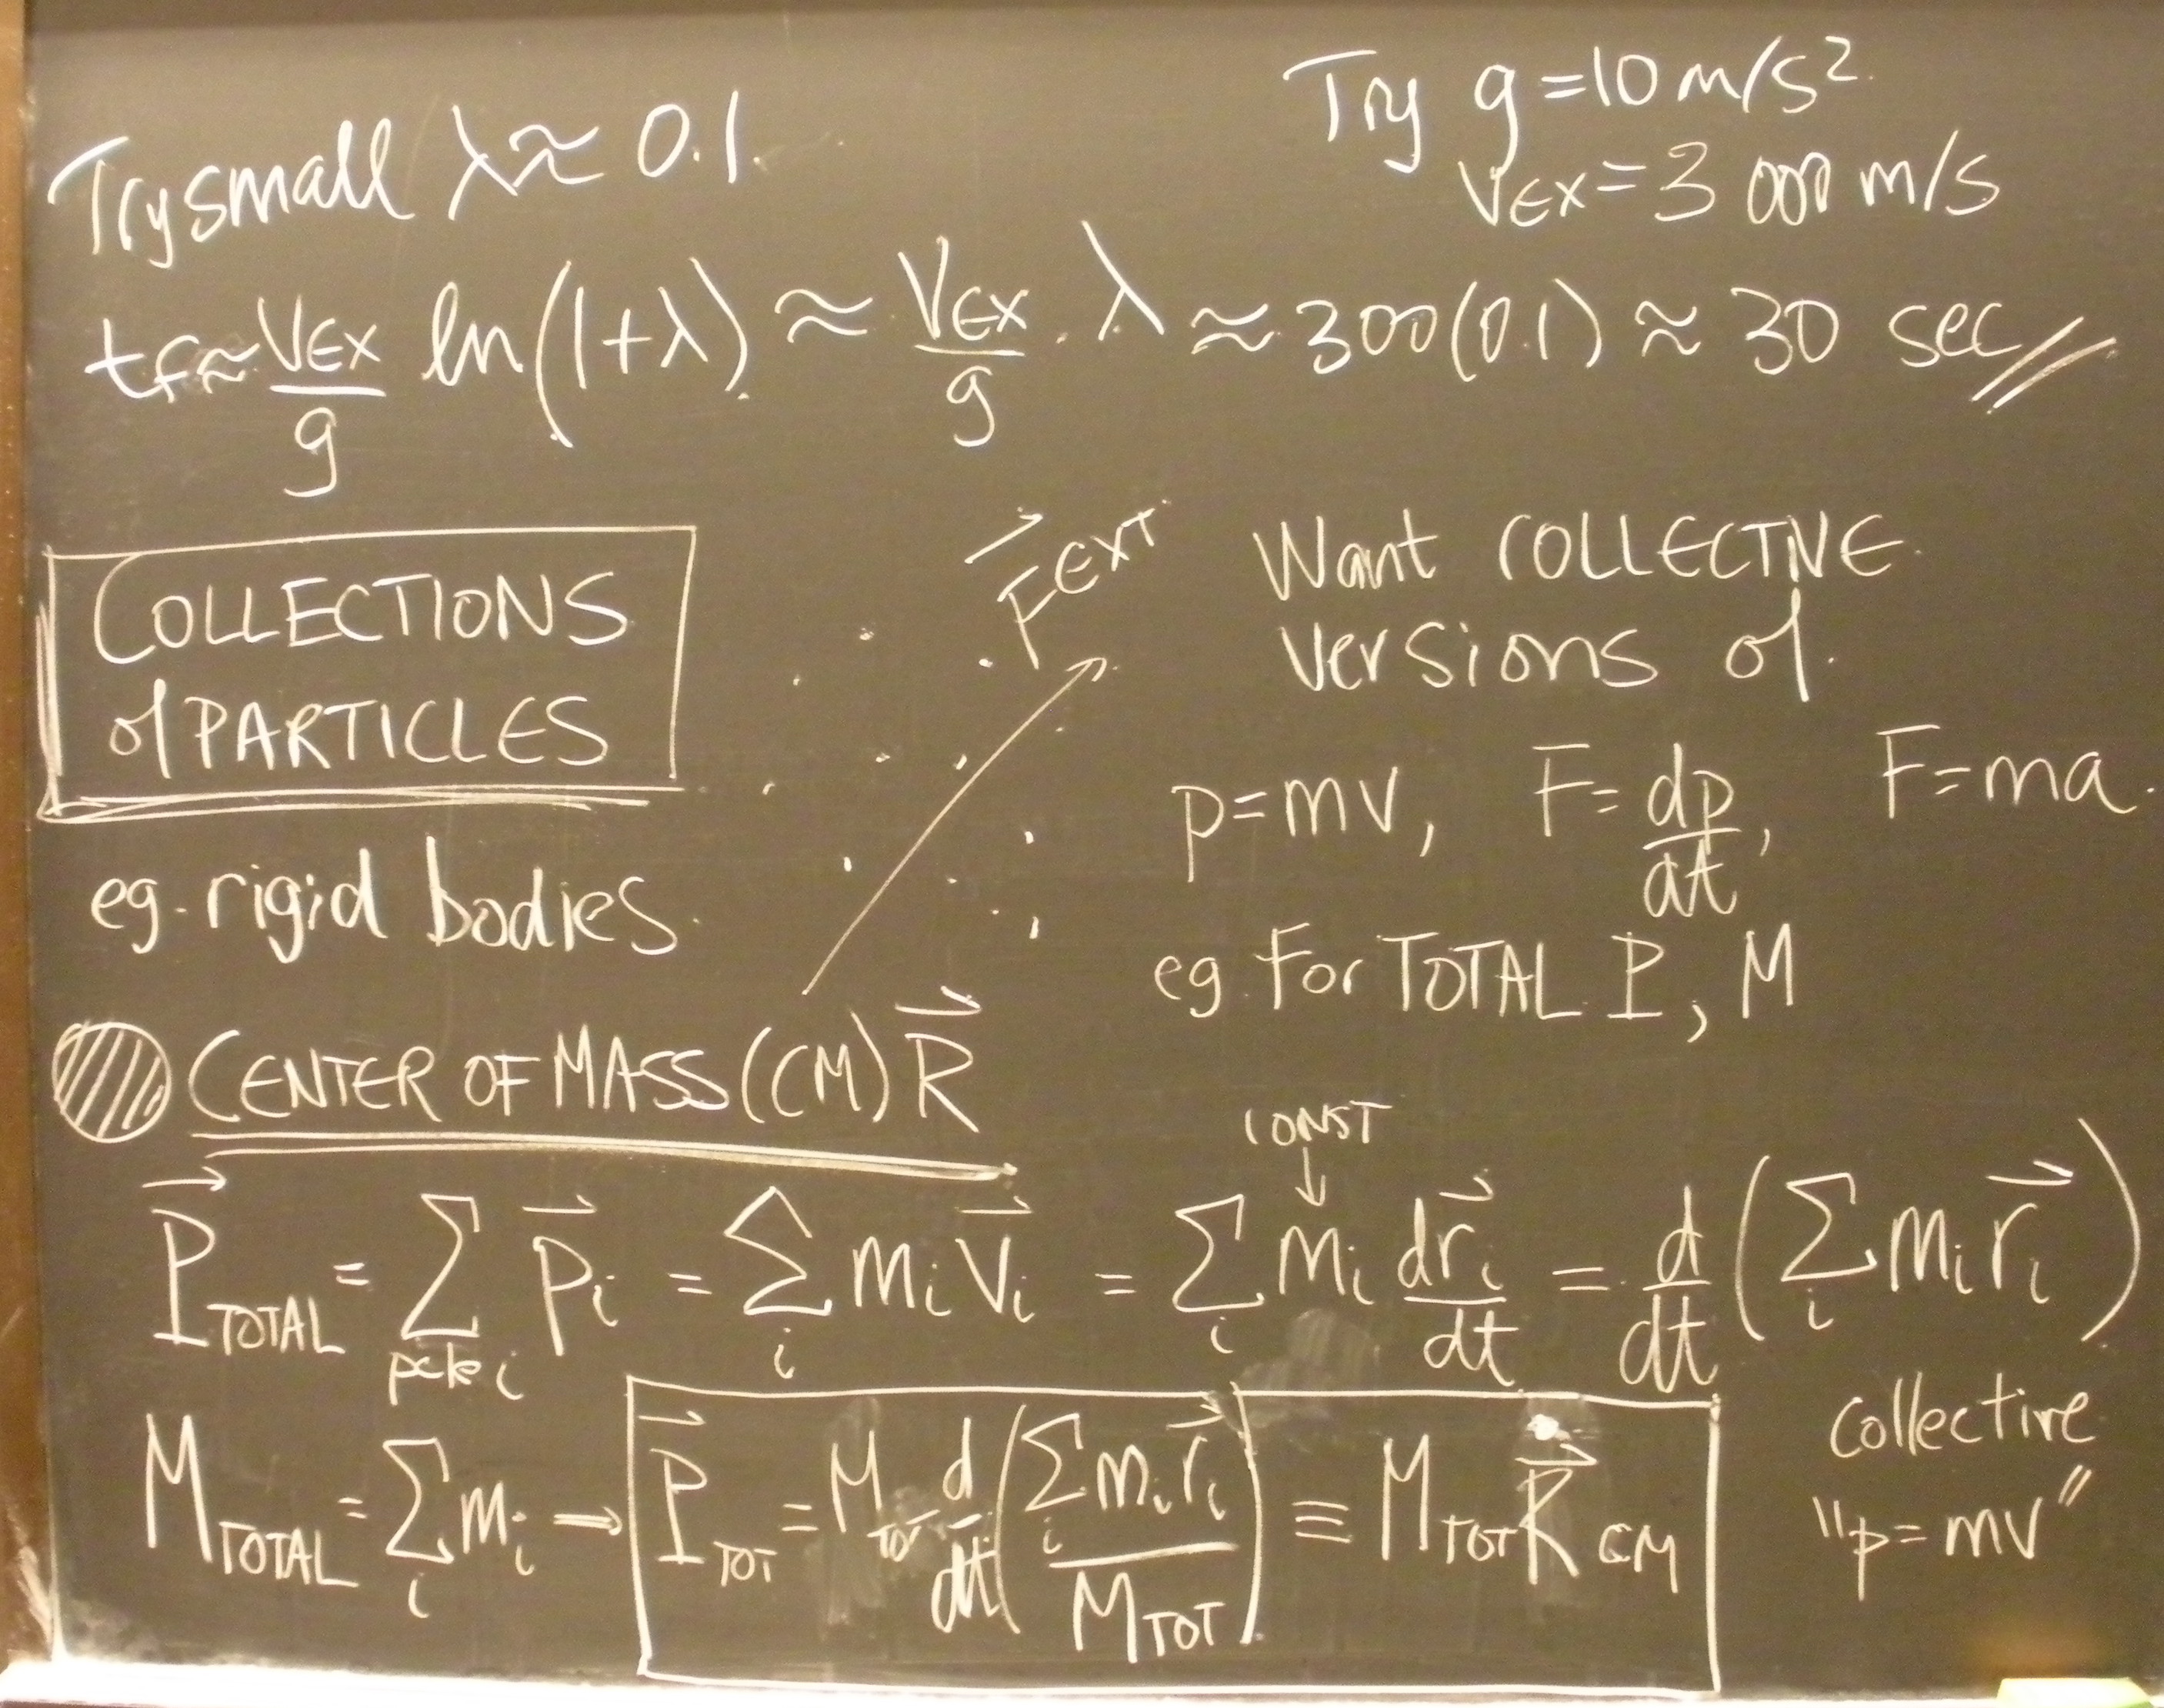 Try small λ ≈ 0.1
Try g = 10 m/s²
v_EX = 3 000 m/s
t_f ≈ V_EX/g ln(1+λ) ≈ V_EX/g · λ ≈ 300(0.1) ≈ 30 sec //
COLLECTIONS
of PARTICLES
eg. rigid bodies
F⃗ EXT
Want COLLECTIVE
versions of
p = mv, F = dp/dt, F = ma.
eg. For TOTAL P, M
CENTER OF MASS (CM) R⃗
CONST
↓
P⃗_TOTAL = Σ_{pcle i} p⃗_i = Σ_i m_i v⃗_i = Σ_i m_i dr⃗_i/dt = d/dt (Σ_i m_i r⃗_i)
M_TOTAL = Σ_i m_i → P⃗_TOT = M_TOT d/dt (Σ_i m_i r⃗_i / M_TOT) ≡ M_TOT Ṙ⃗_CM
collective
"p = mv"